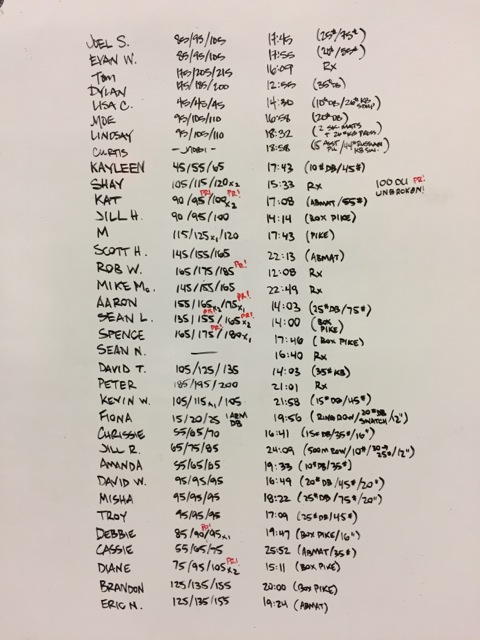 JOEL S. 85/95/105 17:45 (25#/75#)
EVAN W. 85/95/105 17:55 (20#/55#)
TOM 175/205/215 16:09 RX
DYLAN 175/185/200 12:55 (35#DB)
LISA C. 45/45/45 14:30 (10#DB/26#KB
MOE 95/105/110 16:58 (20#DB)
LINDSAY 95/105/110 18:32 (2 MATS + 26#KB PRESS)
CURTIS - MOBI - 18:58 (5 ASST PU/44# RUSSIAN KB SW.)
KAYLEEN 45/55/65 17:43 (10#DB/45#)
SHAY 105/115/120x2 15:33 RX 100 DU PR! UNBROKEN!
KAT 90/95/100x2 PR! PR! 17:08 (ABMAT/55#)
JILL H. 90/95/100 14:14 (BOX PIKE)
M 115/125x1/120 17:43 (PIKE)
SCOTT H. 145/155/165 22:13 (ABMAT)
ROB W. 165/175/185 PR! 12:08 RX
MIKE Mc. 145/155/165 22:49 RX
AARON 155/165x2/175x1 PR! 14:03 (25#DB/75#)
SEAN L. 135/155/165x2 PR! 14:00 (BOX PIKE)
SPENCE 165/175/180x1 PR! 17:46 (BOX PIKE)
SEAN N. — 16:40 RX
DAVID T. 105/125/135 14:03 (35#KB)
PETER 185/195/200 21:01 RX
KEVIN W. 105/115x1/105 21:58 (15#DB/45#)
FIONA 15/20/25 1 ARM DB 19:56 (RING ROW/20#DB SNATCH/12")
CHRISSIE 55/65/70 16:41 (15#DB/35#/16")
JILL R. 65/75/85 24:09 (500M ROW/10#/30→25#/12")
AMANDA 55/65/65 19:33 (10#DB/35#)
DAVID W. 95/95/95 16:49 (20#DB/45#/20")
MISHA 95/95/95 18:22 (25#DB/75#/20")
TROY 95/95/95 17:09 (25#DB/45#)
DEBBIE 85/90/95x1 PR! 19:47 (BOX PIKE/16")
CASSIE 55/65/75 25:52 (ABMAT/35#)
DIANE 75/95/105x2 PR! 15:11 (BOX PIKE)
BRANDON 125/135/155 20:00 (BOX PIKE)
ERIC N. 125/135/155 19:24 (ABMAT)